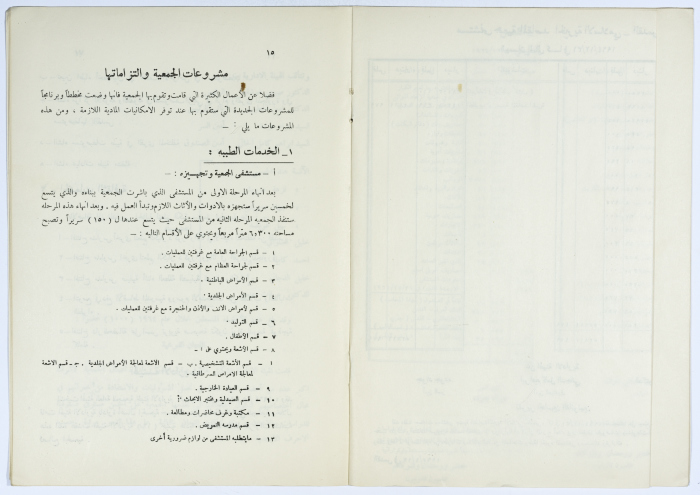 ١٥
مشروعات الجمعية والتزاماتها
فضلا عن الأعمال الكثيرة التي قامت وتقوم بها الجمعية فانها وضعت مخططاً وبرنامجاً
للمشروعات الجديدة التي ستقوم بها عند توفر الامكانيات المادية اللازمة ، ومن هذه
المشروعات ما يلي : —
١ـ الخدمات الطبيه :
أ – مستشفى الجمعية وتجهيزه : —
بعد انهاء المرحلة الاولى من المستشفى الذي باشرت الجمعية ببنائه والذي يتسع
لخمسين سريراً ستجهزه بالادوات والأثاث اللازم وتبدأ العمل فيه . وبعد انهاء هذه المرحله
ستنفذ الجمعيه المرحله الثانيه من المستشفى حيث يتسع عندها ل ( ١٥٠ ) سريراً وتصبح
مساحته ٦٣٠٠ متراً مربعاً ويحتوي على الأقسام التاليه : —
١ – قسم الجراحة العامة مع غرفتين للعمليات .
٢ – قسم لجراحة العظام مع غرفتين للعمليات .
٣ – قسم الأمراض الباطنية .
٤ – قسم الأمراض الجلدية .
٥ – قسم لأمراض الانف والأذن والحنجرة مع غرفتين للعمليات .
٦ – قسم التوليد .
٧ – قسم الأطفال .
٨ – قسم الأشعة ويحتوي على :ـ
ا – قسم الأشعة للتشخيص . ب – قسم الاشعة لمعالجة الأمراض الجلدية . جـ ـ قسم الاشعة
لمعالجة الامراض السرطانية .
٩ – قسم العيادة الخارجية .
١٠ – قسم الصيدلية ومختبر الابحاث .
١١ – مكتبية وغرف محاضرات ومطالعة .
١٢ – قسم مدرسه التمريض .
١٣ – مايتطلبه المستشفى من لوازم ضرورية أخرى